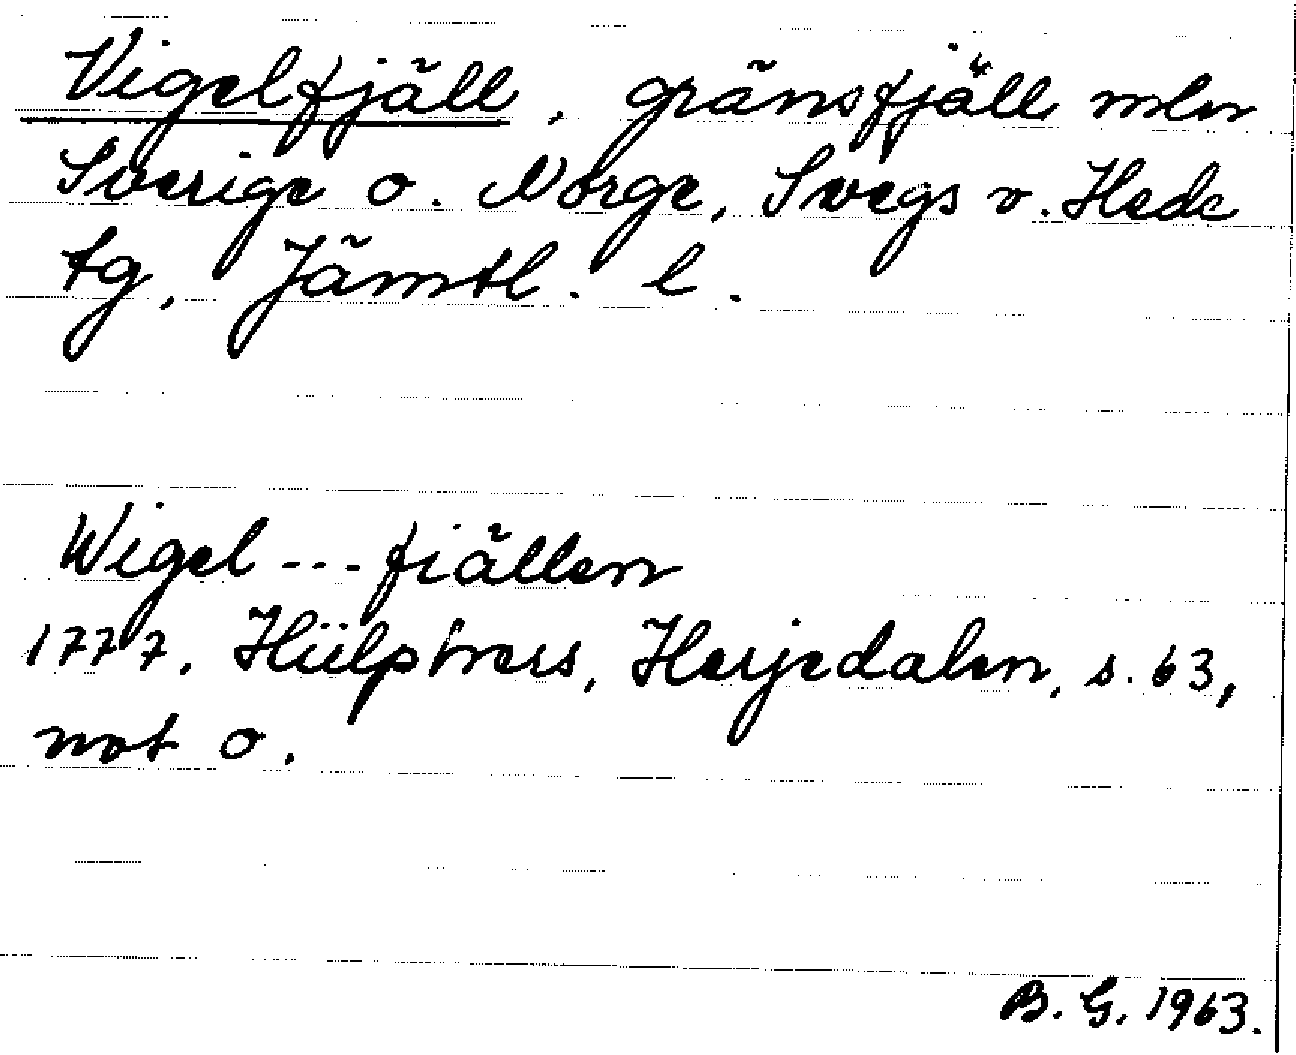 Vigelfjäll, gränsfjäll mln
Sverige o. Norge, Svegs o. Hede
tg, Jämtl. l.
Wigel---fiällen
1777. Hülphers, Herjedalen, s. 63,
not o.
B. G. 1963.